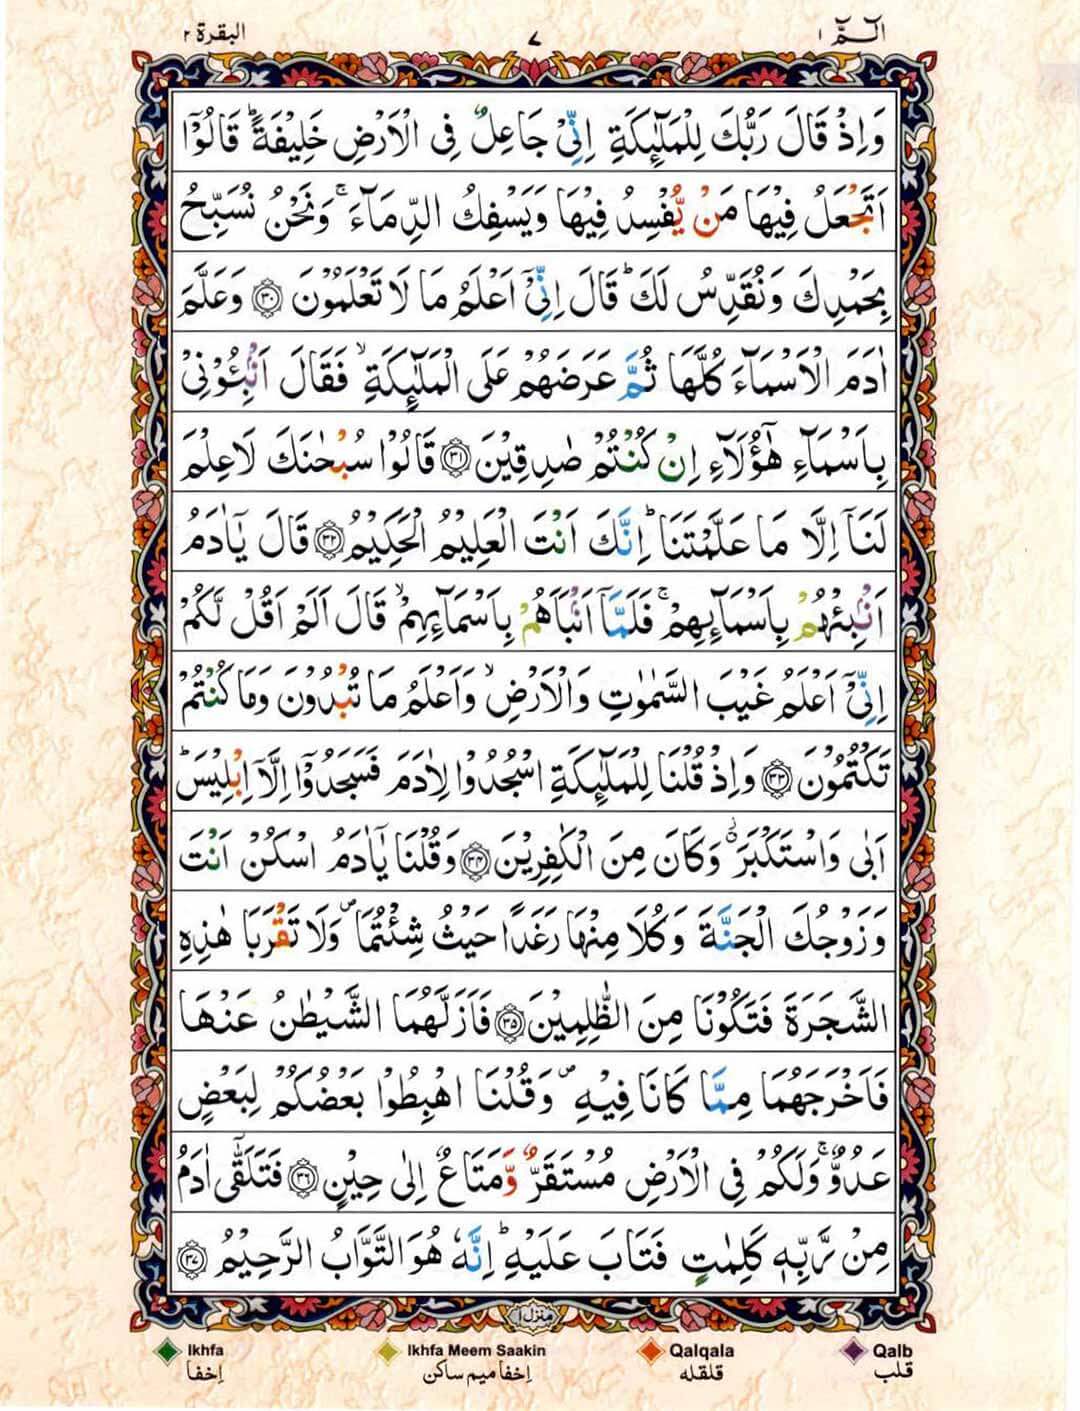 الٓمّٓ ١ ٧ البقرة ٢
وَاِذْ قَالَ رَبُّكَ لِلْمَلٰٓئِكَةِ اِنِّىْ جَاعِلٌ فِى الْاَرْضِ خَلِيْفَةًؕ قَالُوْٓا
اَتَجْعَلُ فِيْهَا مَنْ يُّفْسِدُ فِيْهَا وَيَسْفِكُ الدِّمَآءَۚ وَنَحْنُ نُسَبِّحُ
بِحَمْدِكَ وَنُقَدِّسُ لَكَؕ قَالَ اِنِّىْٓ اَعْلَمُ مَا لَا تَعْلَمُوْنَ ﴿٣٠﴾ وَعَلَّمَ
اٰدَمَ الْاَسْمَآءَ كُلَّهَا ثُمَّ عَرَضَهُمْ عَلَى الْمَلٰٓئِكَةِۙ فَقَالَ اَنْۢبِـُٔوْنِىْ
بِاَسْمَآءِ هٰٓؤُلَآءِ اِنْ كُنْتُمْ صٰدِقِيْنَ ﴿٣١﴾ قَالُوْا سُبْحٰنَكَ لَا عِلْمَ
لَنَآ اِلَّا مَا عَلَّمْتَنَاؕ اِنَّكَ اَنْتَ الْعَلِيْمُ الْحَكِيْمُ ﴿٣٢﴾ قَالَ يٰٓاٰدَمُ
اَنْۢبِئْهُمْ بِاَسْمَآئِهِمْۚ فَلَمَّآ اَنْۢبَاَهُمْ بِاَسْمَآئِهِمْۙ قَالَ اَلَمْ اَقُلْ لَّكُمْ
اِنِّىْٓ اَعْلَمُ غَيْبَ السَّمٰوٰتِ وَالْاَرْضِۙ وَاَعْلَمُ مَا تُبْدُوْنَ وَمَا كُنْتُمْ
تَكْتُمُوْنَ ﴿٣٣﴾ وَاِذْ قُلْنَا لِلْمَلٰٓئِكَةِ اسْجُدُوْا لِاٰدَمَ فَسَجَدُوْٓا اِلَّآ اِبْلِيْسَؕ
اَبٰى وَاسْتَكْبَرَۗ وَكَانَ مِنَ الْكٰفِرِيْنَ ﴿٣٤﴾ وَقُلْنَا يٰٓاٰدَمُ اسْكُنْ اَنْتَ
وَزَوْجُكَ الْجَنَّةَ وَكُلَا مِنْهَا رَغَدًا حَيْثُ شِئْتُمَا۪ وَلَا تَقْرَبَا هٰذِهِ
الشَّجَرَةَ فَتَكُوْنَا مِنَ الظّٰلِمِيْنَ ﴿٣٥﴾ فَاَزَلَّهُمَا الشَّيْطٰنُ عَنْهَا
فَاَخْرَجَهُمَا مِمَّا كَانَا فِيْهِ۪ وَقُلْنَا اهْبِطُوْا بَعْضُكُمْ لِبَعْضٍ
عَدُوٌّۚ وَلَكُمْ فِى الْاَرْضِ مُسْتَقَرٌّ وَّمَتَاعٌ اِلٰى حِيْنٍ ﴿٣٦﴾ فَتَلَقّٰٓى اٰدَمُ
مِنْ رَّبِّهٖ كَلِمٰتٍ فَتَابَ عَلَيْهِؕ اِنَّهٗ هُوَ التَّوَّابُ الرَّحِيْمُ ﴿٣٧﴾
منزل ١
Ikhfa Ikhfa Meem Saakin Qalqala Qalb
إخفا إخفا ميم ساكن قلقله قلب